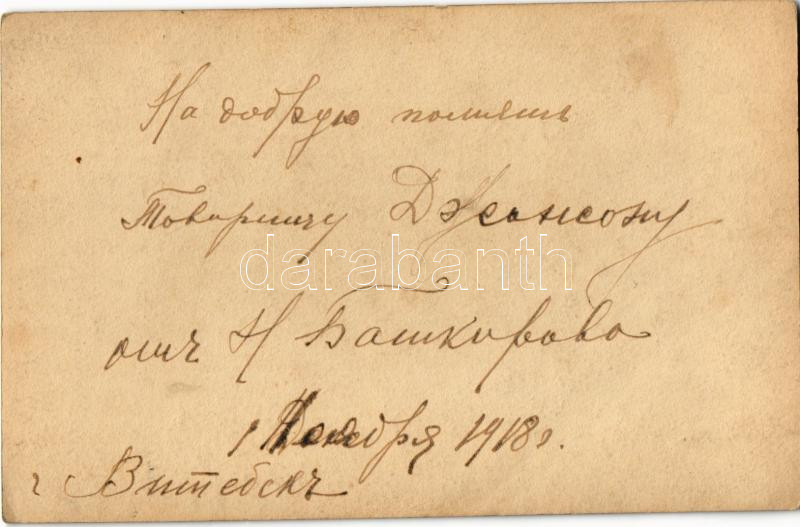 На добрую память
Товарищу Джонсону
darabanth
отъ Н Башкирова
1 Ноября 1918 г.
г Витебскъ